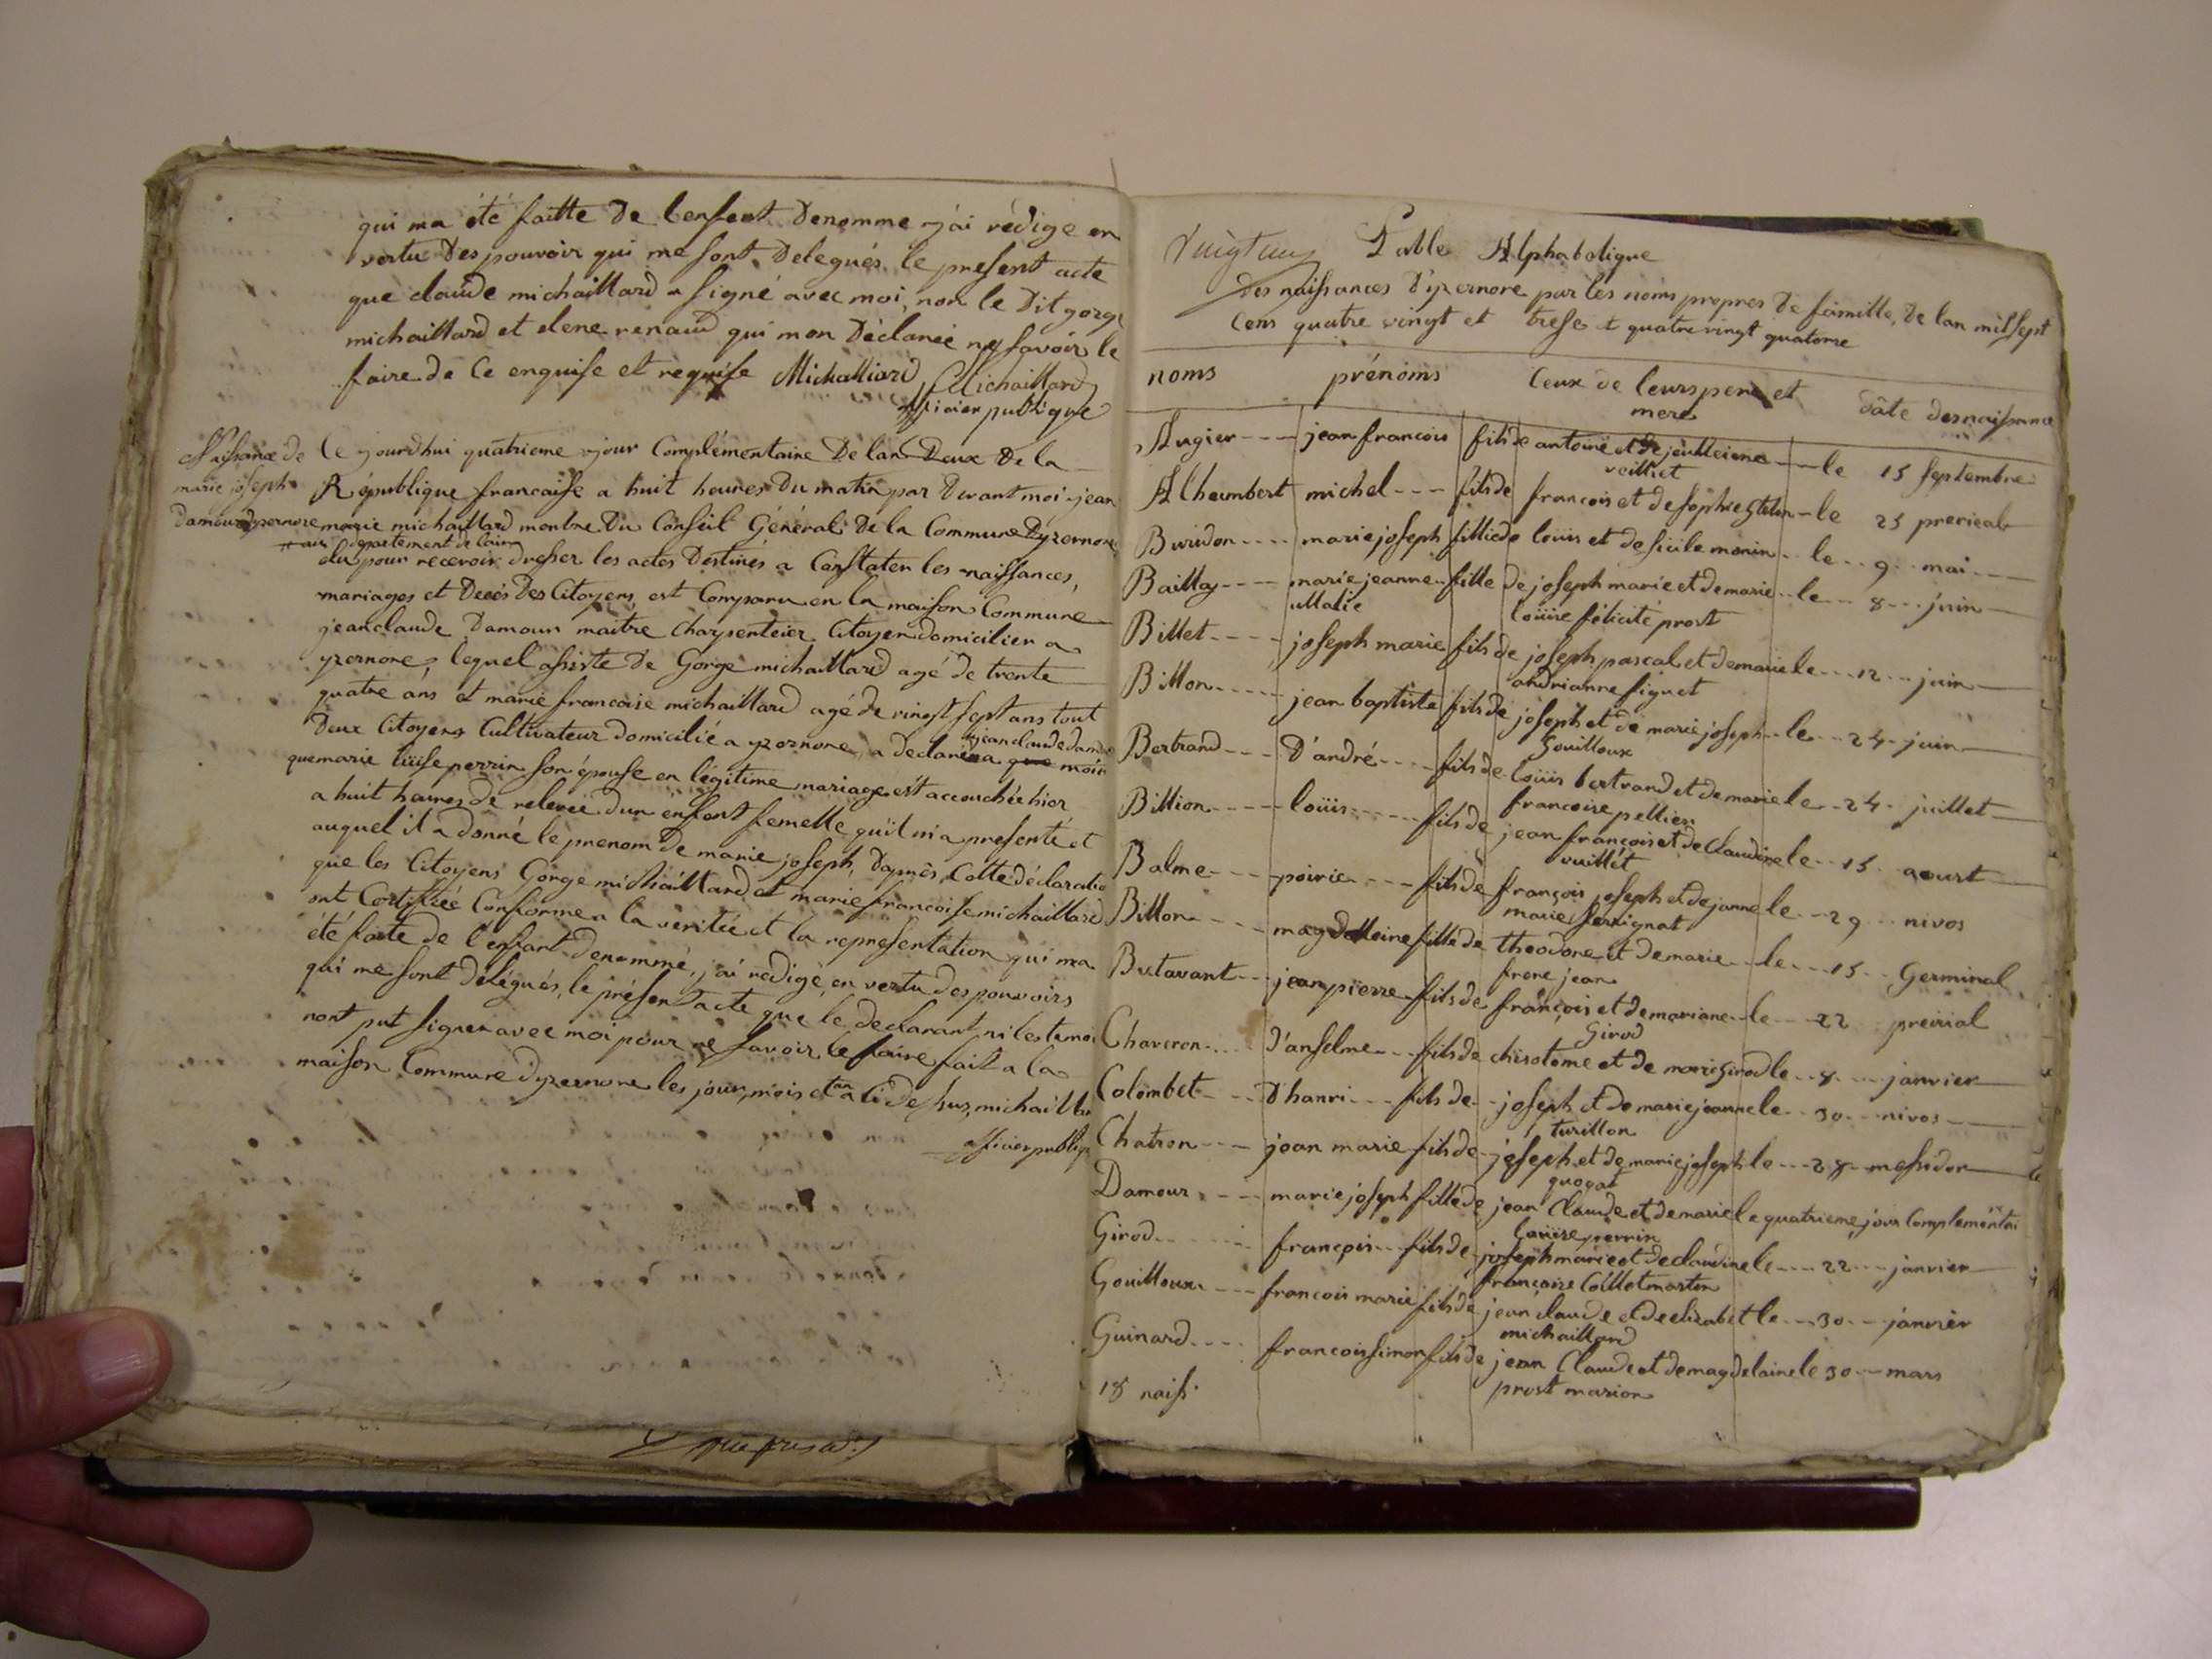 qui ma été faitte de lenfent denomme j'ai rédige en
vertu des pouvoir qui me sont delegués le present acte
que claude michaillard a signé avec moi, non le dit gorge
michaillard et elene renaud qui mon déclareé ne savoir le
faire de ce enquise et requise Michalliard Michaillard
officier publique
Naissance de
marie joseph
damour dyzernore
Ce jourdhui quatrieme jour Complémentaire de lan deux de la
République francaise a huit heures du matin par devant moi jean
marie michaillard monbre du Conseil Général de la Commune dyzernore
departement de lain
elu pour recevoir dresser les actes destinés a Constater les naissances,
mariages et decés des Citoyens est Comparu en la maison Commune
jean claude damour maitre charpenteier Citoyen domicilier a
yzernore, lequel assiste de Gorge michaillard agé de trente
quatre ans et marie francoise michaillard agé de vingt sept ans tout
deux Citoyens Cultivateur domicilié a yzernore, a declareé a que moi
jean claude damour
que marie luise perrin son épouse en légitime mariage est accouchée hier
a huit heures de relevée dun enfent femelle qu'il m'a presenté et
auquel il a donné le prenom de marie joseph, daprês Cette déclaratio
que les Citoyens Gorge michaillard et marie francoise michaillard
ont Certifiée Conforme a la veritée et la representation qui ma
été faite de l'enfant denommé, j'ai redigé en vertu des pouvoirs
qui me sont délégués, le présent acte que le declarant ni les temoi
nont put signer avec moi pour ne savoir le faire fait a la
maison Commune dyzernore les jour, mois et an ci dessus, michailla
officier publiq
Table Alphabetique
des naissances d'yzernore par les noms propres de famille, de lan mil sept
cens quatre vingt et trese & quatre vingt quatorze
noms prénoms Ceux de leurs pere et mere dâte des naissance
Augier jean francois fils de antoine et de jeulleienne veilliet le 15 septembre
Alhaumbert michel fils de francois et de sophie le 25 prerieal
Buridon marie joseph fillie de loüis et de sicile monin le 9 mai
Baillay marie jeanne ullalie fille de joseph marie et de marie loüise félicité prost le 8 juin
Billet joseph marie fils de joseph pascal et de marie andrianne figuet le 12 juin
Billon jean baptiste fils de joseph et de marie joseph Gouilloux le 24 juin
Bertrand d'andré fils de loüis bertrand et de marie francoise pellier le 24 juillet
Billion loüis fils de jean françois et de Claudine vuillét le 15 aourt
Balme poirie fils de françois joseph et de janne marie le 29 nivos
Billon magdelleine fille de theodore et de marie frere jean le 15 Germinal
Butavant jean pierre fils de françois et de mariane Girod le 22 preirial
Chaveron d'anselme fils de chisotome et de marie Girod le 8 janvier
Colombet d'hanri fils de joseph et de marie jeanne turillon le 30 nivos
Chatron jean marie fils de joseph et de marie joseph le 28 messidor
Damour marie joseph fille de jean Claude et de marie louise perrin le quatrieme jour Complementai
Girod françois fils de joseph marie et de claudine françoise Collet martin le 22 janvier
Gouilloux francois marie fils de jean claude et de elizabet michaillard le 30 janvier
Guinard francois simon fils de jean Claude et de magdelaine prost marion le 30 mars
18 naiss